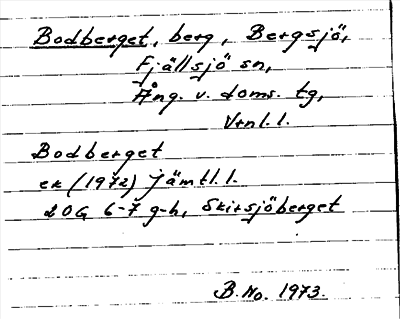 Bodberget, berg, Bergsjö,
Fjällsjö sn,
Ång. v. doms. tg,
Vrnl.l.
Bodberget
ek (1972) Jämtl.l.
20G 6-7 g-h, Skirsjöberget
B.Mo. 1973.